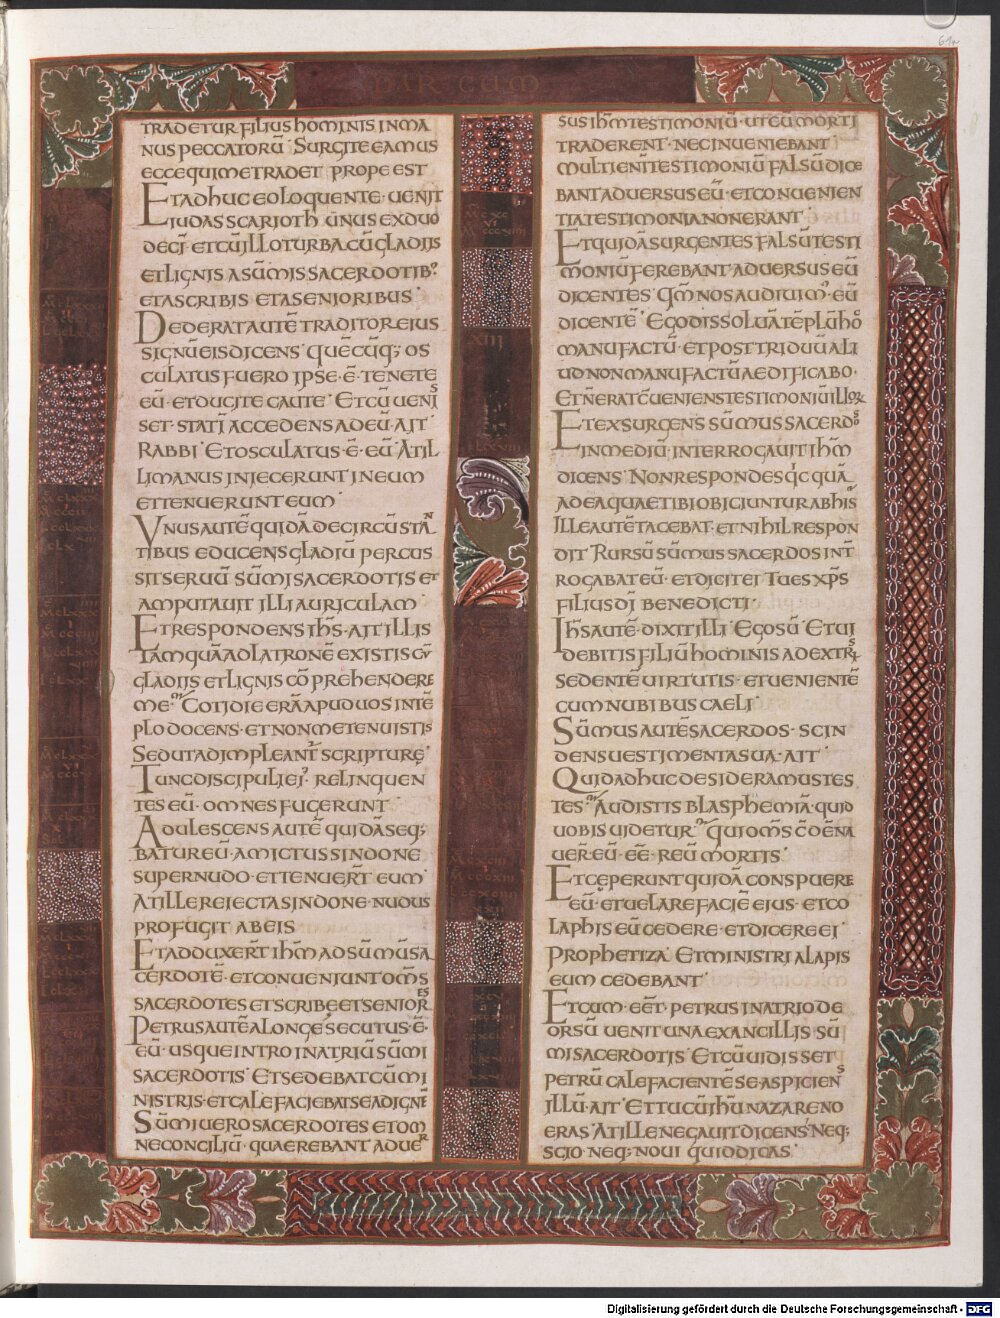 61r
MARCUM
TRADETUR FILIUS HOMINIS IN MA
NUS PECCATORŪ· SURGITE EAMUS
ECCE QUI ME TRADET PROPE EST
ET ADHUC EO LOQUENTE· UENIT
IUDAS SCARIOTH UNUS EX DUO
DECĪ· ET CŪ ILLO TURBA CŪ GLADIIS
ET LIGNIS A SŪMIS SACERDOTIB;
ET A SCRIBIS· ET A SENIORIBUS·
DEDERAT AUTĒ TRADITOR EIUS
SIGNŪ EIS DICENS· QUĒCŪQ; OS
CULATUS FUERO IPSE· Ē· TENETE
EŪ· ET DUCITE CAUTE· ET CŪ UENIS
SET· STATĪ ACCEDENS AD EŪ· AIT·
RABBI· ET OSCULATUS· Ē· EŪ· AT IL
LI MANUS INIECERUNT IN EUM
ET TENUERUNT EUM·
UNUS AUTĒ QUIDĀ DE CIRCŪSTAN
TIBUS EDUCENS GLADIŪ PERCUS
SIT SERUŪ SŪMI SACERDOTIS ET
AMPUTAUIT ILLI AURICULAM·
ET RESPONDENS IHS· AIT ILLIS
TĀMQUĀ AD LATRONĒ EXISTIS CŪ
GLADIIS ET LIGNIS CŌPREHENDERE
ME· COTIDIE ERĀ APUD UOS IN TĒ
PLO DOCENS· ET NON ME TENUISTIS
SED UT ADIMPLEANTR SCRIPTURĘ·
TUNC DISCIPULI EI· RELINQUEN
TES EŪ· OMNES FUGERUNT·
ADULESCENS AUTĒ QUIDĀ SEQ;
BATUR EŪ· AMICTUS SINDONE
SUPER NUDO· ET TENUERT EUM·
AT ILLE REIECTA SINDONE· NUDUS
PROFUGIT AB EIS·
ET ADDUXERT IHM AD SŪMŪ SA
CERDOTĒ· ET CONUENIUNT OMS
SACERDOTES ET SCRIBE ET SENIORES
PETRUS AUTĒ A LONGE SECUTUS· Ē·
EŪ· USQUE INTRO IN ATRIŪ SŪMI
SACERDOTIS· ET SEDEBAT CŪ MI
NISTRIS· ET CALEFACIEBAT SE AD IGNĒ
SŪMI UERO SACERDOTES ET OM
NE CONCILIŪ· QUAEREBANT ADUER
SUS IHM TESTIMONIŪ· UT EŪ MORTI
TRADERENT· NEC INUENIEBANT·
MULTI ENĪ TESTIMONIŪ FALSŪ DICE
BANT ADUERSUS EŪ· ET CONUENIEN
TIA TESTIMONIA NON ERANT·
ET QUIDĀ SURGENTES FALSŪ TESTI
MONIŪ FEREBANT ADUERSUS EŪ
DICENTES· QM NOS AUDIUIM; EŪ
DICENTĒ· EGO DISSOLUĀ TĒPLŪ HOC
MANU FACTŪ· ET POST TRIDUŪ ALI
UD NON MANU FACTŪ AEDIFICABO·
ET N̄ ERAT CŪENIENS TESTIMONIŪ ILLOR
ET EXSURGENS SŪMUS SACERDOS
IN MEDIŪ· INTERROGAUIT IHM
DICENS· NON RESPONDES QCQUĀ
AD EA QUAE TIBI OBICIUNTUR AB HIS
ILLE AUTĒ TACEBAT· ET NIHIL RESPON
DIT· RURSŪ SŪMUS SACERDOS INT
ROGABAT EŪ· ET DICIT EI· TU ES XPS
FILIUS DĪ BENEDICTI·
IHS AUTĒ· DIXIT ILLI· EGO SŪ· ET UI
DEBITIS FILIŪ HOMINIS A DEXTRIS
SEDENTĒ UIRTUTIS· ET UENIENTĒ
CUM NUBIBUS CAELI·
SŪMUS AUTĒ SACERDOS· SCIN
DENS UESTIMENTA SUA· AIT·
QUID ADHUC DESIDERAMUS TES
TES· AUDISTIS BLASPHEMIĀ· QUID
UOBIS UIDETUR· QUI OMS CŌDĒNA
UER· EŪ· EE· REŪ MORTIS·
ET CĘPERUNT QUIDĀ CONSPUERE
EŪ· ET UELARE FACIĒ EIUS· ET CO
LAPHIS EŪ CEDERE· ET DICERE EI·
PROPHETIZA· ET MINISTRI ALAPIS
EUM CEDEBANT·
ET CUM· EET· PETRUS IN ATRIO DE
ORSŪ· UENIT UNA EX ANCILLIS SŪ
MI SACERDOTIS· ET CŪ UIDISSET
PETRŪ CALEFACIENTĒ SE· ASPICIENS
ILLŪ· AIT· ET TU CŪ IHU NAZARENO
ERAS· AT ILLE NEGAUIT DICENS· NEQ;
SCIO· NEQ; NOUI QUID DICAS·
Digitalisierung gefördert durch die Deutsche Forschungsgemeinschaft - DFG